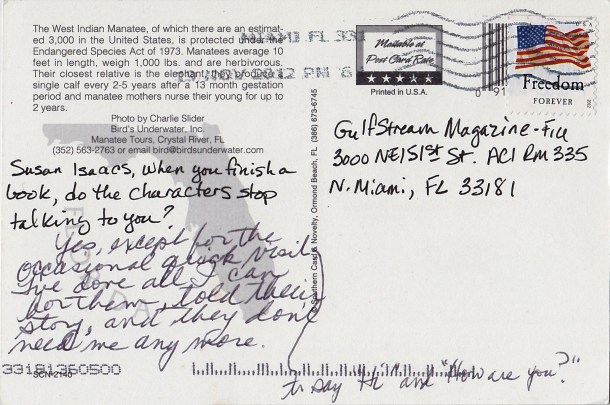 The West Indian Manatee, of which there are an estimat-
ed 3,000 in the United States, is protected under the
Endangered Species Act of 1973. Manatees average 10
feet in length, weigh 1,000 lbs. and are herbivorous.
Their closest relative is the elephant, they produce a
single calf every 2-5 years after a 13 month gestation
period and manatee mothers nurse their young for up to
2 years.
Photo by Charlie Slider
Bird's Underwater, Inc.
Manatee Tours, Crystal River, FL
(352) 563-2763 or email bird@birdsunderwater.com
MIAMI FL 331
NOV 2012 PM 6
Mailable at
Post Card Rate
Printed in U.S.A.
USA
Freedom
FOREVER
91
Southern Card & Novelty, Ormond Beach, FL (386) 673-6745
GulfStream Magazine-FIU
3000 NE151st St. AC1 Rm 335
N. Miami, FL 33181
Susan Isaacs, when you finish a
book, do the characters stop
talking to you?
Yes, except for the
occasional quick visit
I've done all I can
for them, told their
story, and they don't
need me any more.
to say "Hi" and "How are you?"
FLORIDA
33181360500
SCN-2140